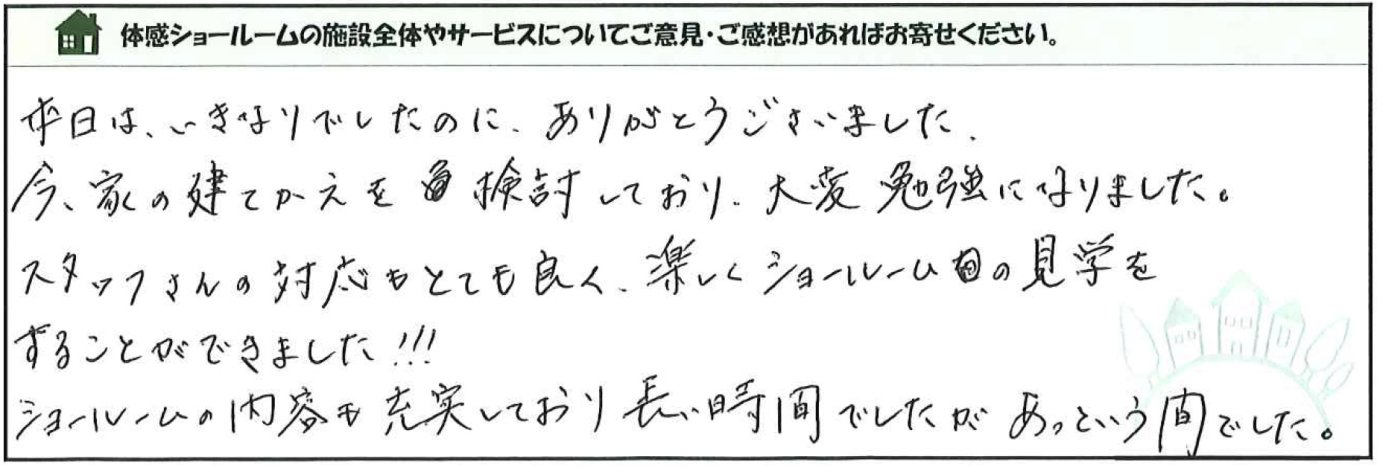 体感ショールームの施設全体やサービスについてご意見・ご感想があればお寄せください。
本日は、いきなりでしたのに、ありがとうございました、
今、家の建てかえを検討しており、大変勉強になりました。
スタッフさんの対応もとても良く、楽しくショールームの見学を
することができました!!!
ショールームの内容も充実しており長い時間でしたがあっという間でした。